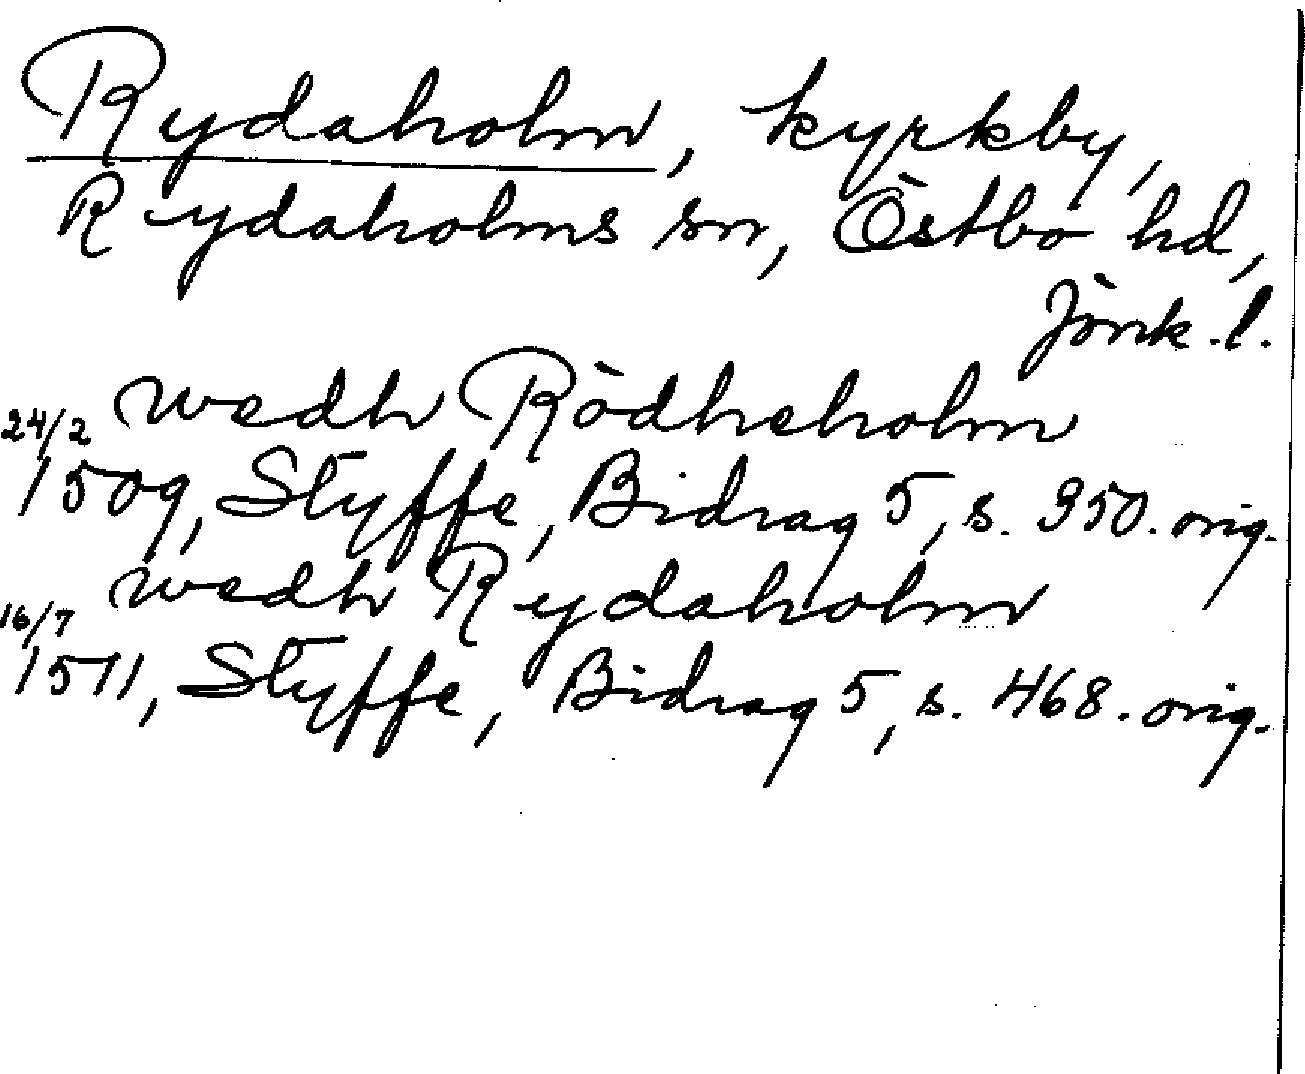 Rydaholm, kyrkby,
Rydaholms sn, Östbo hd,
Jönk. l.
24/2 wedh Rödheholm
1509, Styffe, Bidrag 5, s. 350. orig.
16/7 wedh Rydaholm
1511, Styffe, Bidrag 5, s. 468. orig.